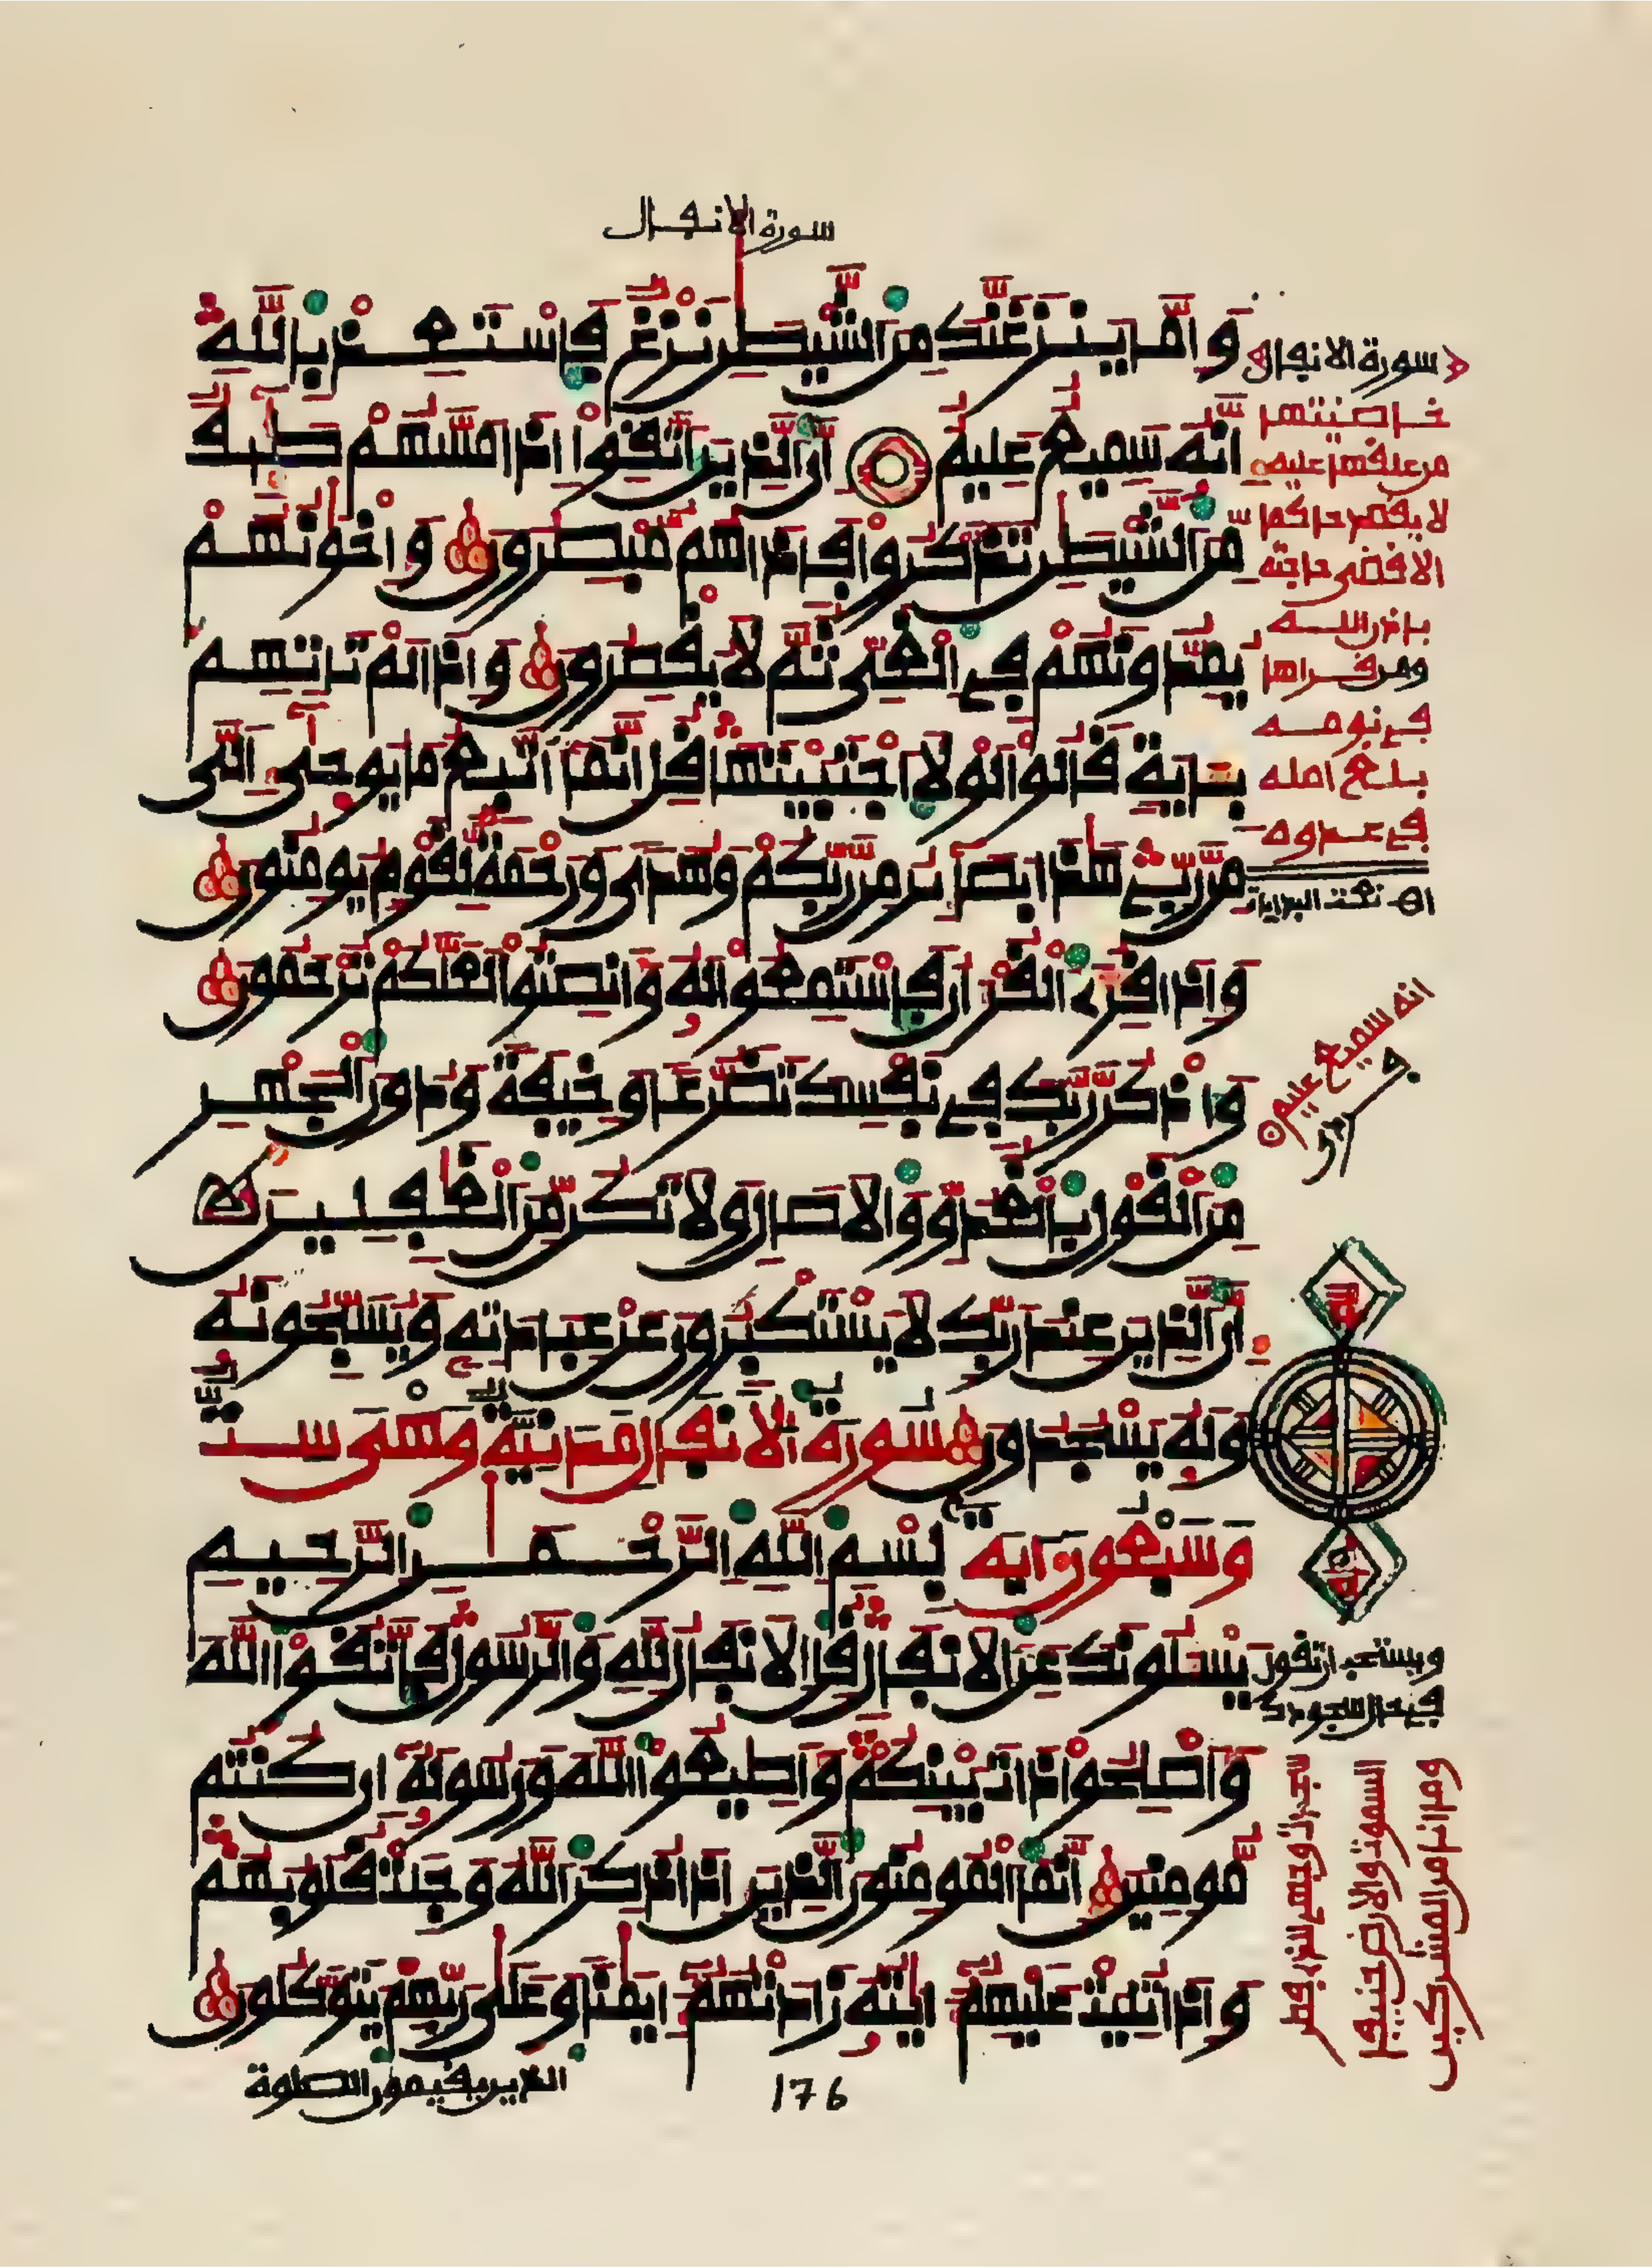 سورة الانفال
وَإِمَّا يَنزَغَنَّكَ مِنَ ٱلشَّيْطَٰنِ نَزْغٌ فَٱسْتَعِذْ بِٱللَّهِ
إِنَّهُۥ سَمِيعٌ عَلِيمٌ إِنَّ ٱلَّذِينَ ٱتَّقَوْا۟ إِذَا مَسَّهُمْ طَٰٓئِفٌ
مِّنَ ٱلشَّيْطَٰنِ تَذَكَّرُوا۟ فَإِذَا هُم مُّبْصِرُونَ وَإِخْوَٰنُهُمْ
يُمِدُّونَهُمْ فِى ٱلْغَىِّ ثُمَّ لَا يُقْصِرُونَ وَإِذَا لَمْ تَأْتِهِم
بِـَٔايَةٍ قَالُوا۟ لَوْلَا ٱجْتَبَيْتَهَا قُلْ إِنَّمَآ أَتَّبِعُ مَا يُوحَىٰٓ إِلَىَّ
مِن رَّبِّى هَٰذَا بَصَآئِرُ مِن رَّبِّكُمْ وَهُدًى وَرَحْمَةٌ لِّقَوْمٍ يُومِنُونَ
وَإِذَا قُرِئَ ٱلْقُرْءَانُ فَٱسْتَمِعُوا۟ لَهُۥ وَأَنصِتُوا۟ لَعَلَّكُمْ تُرْحَمُونَ
وَٱذْكُر رَّبَّكَ فِى نَفْسِكَ تَضَرُّعًا وَخِيفَةً وَدُونَ ٱلْجَهْرِ
مِنَ ٱلْقَوْلِ بِٱلْغُدُوِّ وَٱلْاصَالِ وَلَا تَكُن مِّنَ ٱلْغَٰفِلِينَ
إِنَّ ٱلَّذِينَ عِندَ رَبِّكَ لَا يَسْتَكْبِرُونَ عَنْ عِبَادَتِهِۦ وَيُسَبِّحُونَهُۥ
وَلَهُۥ يَسْجُدُونَ سُورَةُ ٱلْانفَالِ مَدَنِيَّةٌ وَهْىَ سِتٌّ
وَسَبْعُونَ ءَايَةً بِسْمِ ٱللَّهِ ٱلرَّحْمَٰنِ ٱلرَّحِيمِ
يَسْـَٔلُونَكَ عَنِ ٱلْانفَالِ قُلِ ٱلْانفَالُ لِلَّهِ وَٱلرَّسُولِ فَٱتَّقُوا۟ ٱللَّهَ
وَأَصْلِحُوا۟ ذَاتَ بَيْنِكُمْ وَأَطِيعُوا۟ ٱللَّهَ وَرَسُولَهُۥٓ إِن كُنتُم
مُّومِنِينَ إِنَّمَا ٱلْمُومِنُونَ ٱلَّذِينَ إِذَا ذُكِرَ ٱللَّهُ وَجِلَتْ قُلُوبُهُمْ
وَإِذَا تُلِيَتْ عَلَيْهِمْ ءَايَٰتُهُۥ زَادَتْهُمْ إِيمَٰنًا وَعَلَىٰ رَبِّهِمْ يَتَوَكَّلُونَ
الذين يقيمون الصلوة
176
سورة الانفال
خاصيتها
من علقها عليه
لا يقصر حاكم
الا قضى حاجته
باذن الله
ومن قراها
في نومه
بلغ امله
في عدوه
انه سميع عليم
ويستحب ان تقول
وجهي للذي فطر
السموت والارض حنيفا
وما انا من المشركين